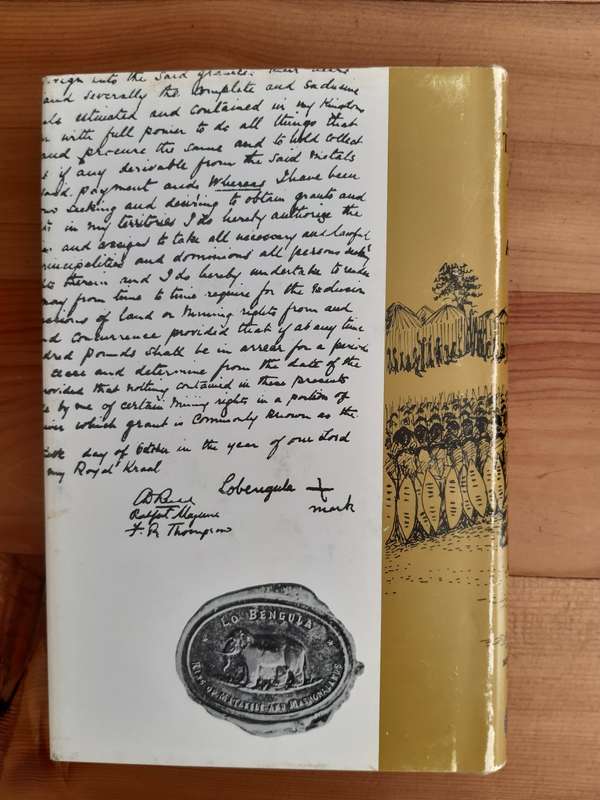 into the said grantees
and severally the complete and exclusive
situated and contained in my Kingdom
with full power to do all things that
and procure the same and to hold collect
if any derivable from the said Metals
said payment and Whereas I have been
seeking and desiring to obtain grants and
in my territories I do hereby authorize the
and assigns to take all necessary and lawful
principalities and dominions all persons seeking
therein and I do hereby undertake to render
may from time to time require for the Exclusion
of land or Mining rights from and
and concurrence provided that if at any time
dred pounds shall be in arrear for a period
cease and determine from the date of the
rovided that nothing contained in these presents
by me of certain Mining rights in a portion of
which grant is commonly known as the
day of October in the year of our Lord
my Royal Kraal
Lobengula
mark
F. R. Thompson
LO BENGULA
KING OF MATABELE AND MASHONALAND